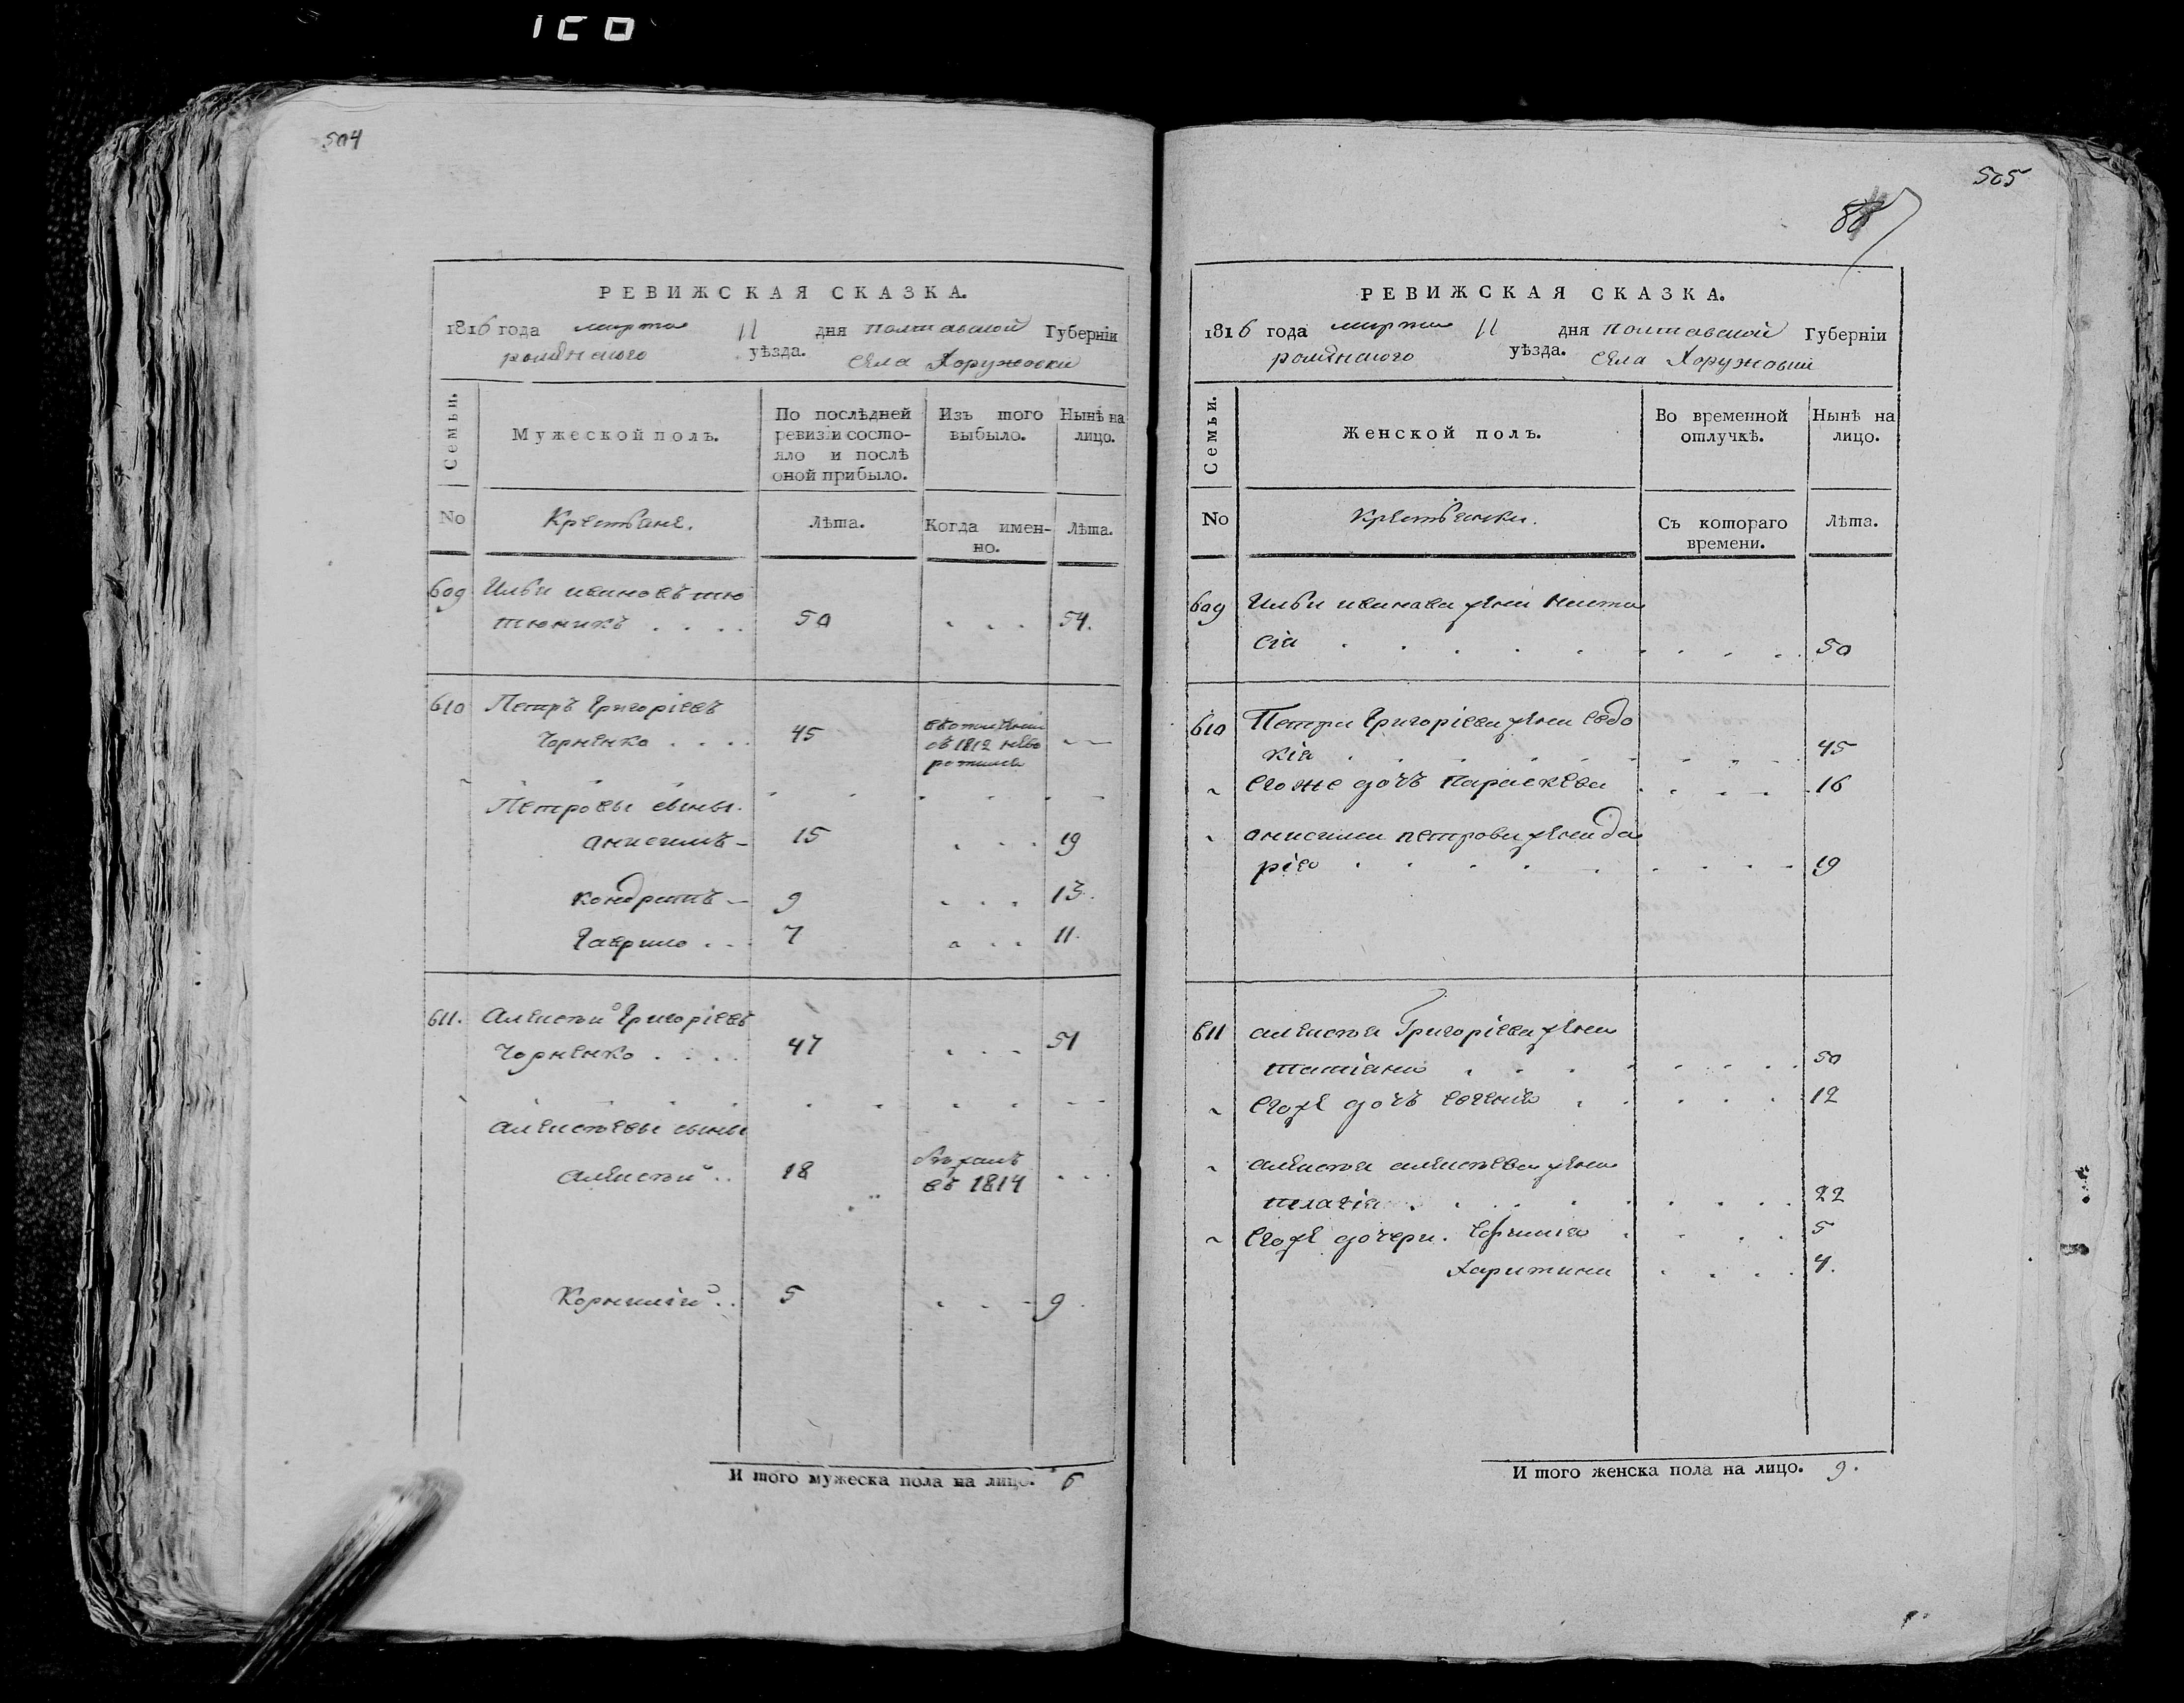 504
РЕВИЖСКАЯ СКАЗКА.
1816 года марта 11 дня полтавской Губерніи
роменского уѣзда. села Хоружовки
Семьи.
Мужеской полъ.
По послѣдней ревизіи состояло и послѣ оной прибыло.
Изъ того выбыло.
Нынѣ на лицо.
No
Крестьяне.
Лѣта.
Когда именно.
Лѣта.
609 Илья ивановъ тю
тюникъ . . . . 50 . . . 54.
610 Петръ Григоріевъ
Чорненко . . . . 45
въ 1812 — —
Петровы сыны.
анисимъ — 15 . . . 19
кондратъ — 9 . . . 13.
Гаврило . . . 7 . . . 11.
611. Алексѣй Григоріевъ
Чорненко . . . . 47 . . . 51
Алексѣевы сыны
алексѣй . . 18 въ 1814 . . .
Корнилій . . 5 . . - 9.
И того мужеска пола на лицо. 6
505
88
РЕВИЖСКАЯ СКАЗКА.
1816 года марта 11 дня полтавской Губерніи
роменского уѣзда. села Хоружовки
Семьи.
Женской полъ.
Во временной отлучкѣ.
Нынѣ на лицо.
No
Крестьянки.
Съ котораго времени.
Лѣта.
609 Ильи иванова жена наста
сія . . . . . . . . 50
610 Петра Григоріева жена евдо
кія . . . . . . . . 45
его же дочь параскева . . . . 16
анисима петрова жена да
рія . . . . . . . . 19
611 алексѣя Григоріева жена
татіана . . . . . . . 50
егоже дочь евгенія . . . . . 12
алексѣя алексѣева жена
пелагія . . . . . . . . 22
егоже дочери. Ефимія . . . . 5
Харитина . . . . 4.
И того женска пола на лицо. 9.